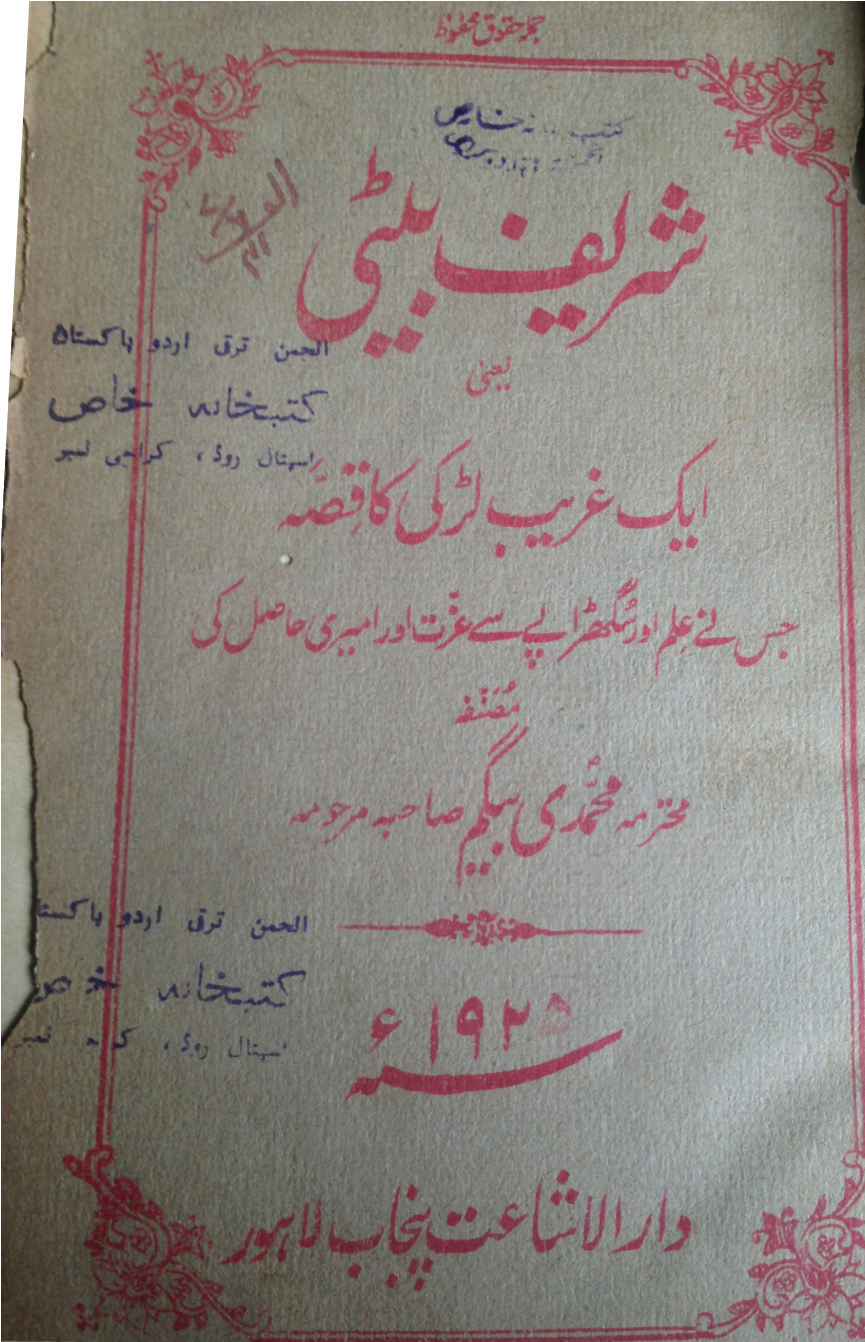 جملہ حقوق محفوظ
کتب خانہ خاص
شریف بیٹی
یعنی
انجمن ترقی اردو پاکستان
کتبخانہ خاص
اسپتال روڈ، کراچی نمبر
ایک غریب لڑکی کا قِصّہ
جس نے عِلم اور سُگھڑاپے سے عزّت اور امیری حاصل کی
مُصَنّفہ
محترمہ محمّدی بیگم صاحبہ مرحومہ
انجمن ترقی اردو پاکستا
کتبخانہ خاص
سپتال روڈ،
سنہ ۱۹۲۵ء
دارالاشاعت پنجاب لاہور